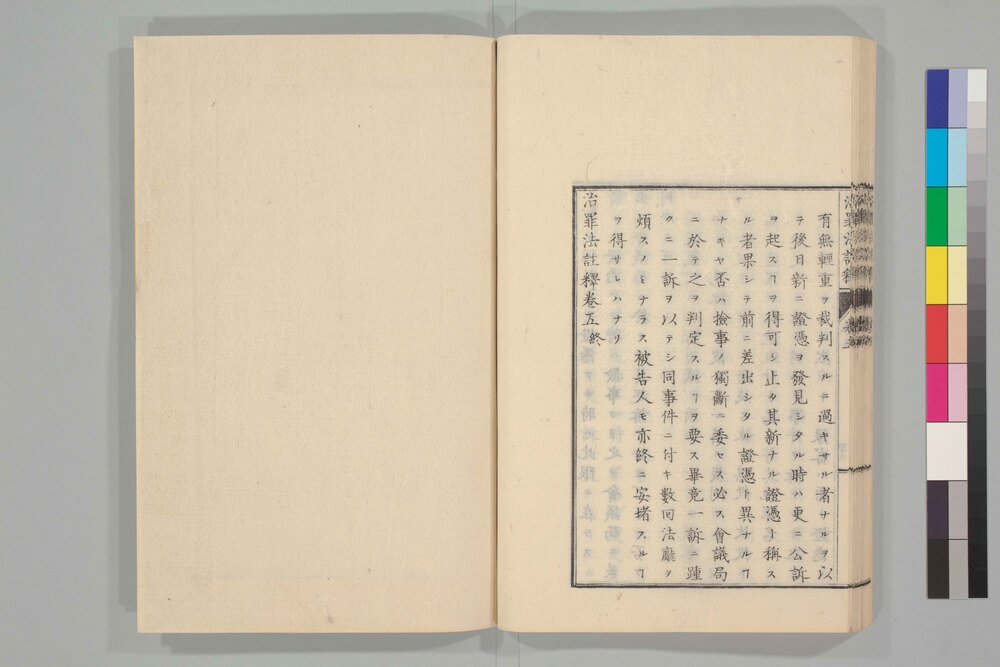 有無輕重ヲ裁判スルニ過キサル者ナルヲ以
テ後日新ニ證憑ヲ發見シタル時ハ更ニ公訴
ヲ起スヿヲ得可シ止タ其新ナル證憑ト稱ス
ル者果シテ前ニ差出シタル證憑ト異ナルヿ
ナキヤ否ハ撿事ノ獨斷ニ委セス必ス會議局
ニ於テ之ヲ判定スルヿヲ要ス畢竟一訴ニ踵
クニ一訴ヲ以テシ同事件ニ付キ數回法廳ヲ
煩スノミナラス被告人モ亦終ニ安堵スルヿ
ヲ得サレハナリ
治罪法註釋卷五終